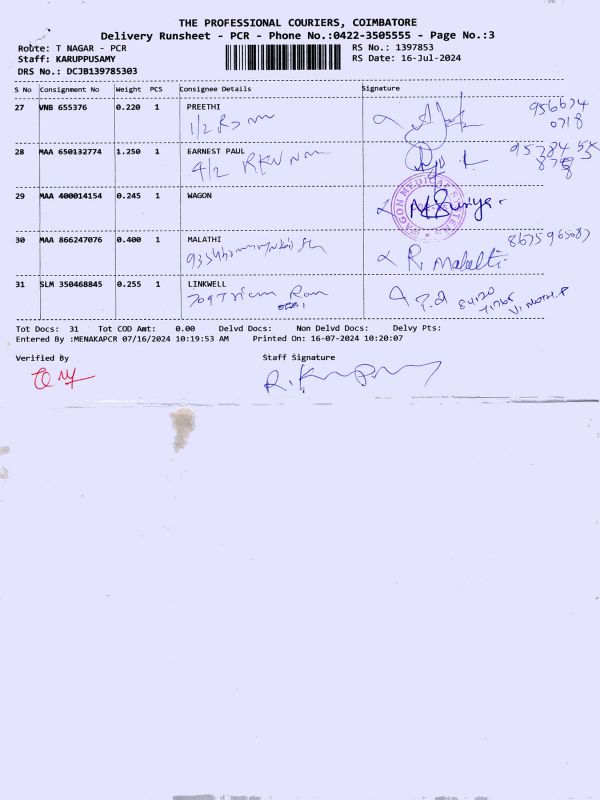 THE PROFESSIONAL COURIERS, COIMBATORE
Delivery Runsheet - PCR - Phone No.:0422-3505555 - Page No.:3
Route: T NAGAR - PCR RS No.: 1397853
Staff: KARUPPUSAMY RS Date: 16-Jul-2024
DRS No.: DCJB139785303
S No Consignment No Weight PCS Consignee Details Signature
27 VNB 655376 0.220 1 PREETHI
956674
0718
1/2
28 MAA 650132774 1.250 1 EARNEST PAUL
4/2 RKV
29 MAA 400014154 0.245 1 WAGON
WAGON MEDICAL SYSTEMS
30 MAA 866247076 0.400 1 MALATHI
R. Malathi
31 SLM 350468845 0.255 1 LINKWELL
709
Tot Docs: 31 Tot COD Amt: 0.00 Delvd Docs: Non Delvd Docs: Delvy Pts:
Entered By :MENAKAPCR 07/16/2024 10:19:53 AM Printed On: 16-07-2024 10:20:07
Verified By Staff Signature